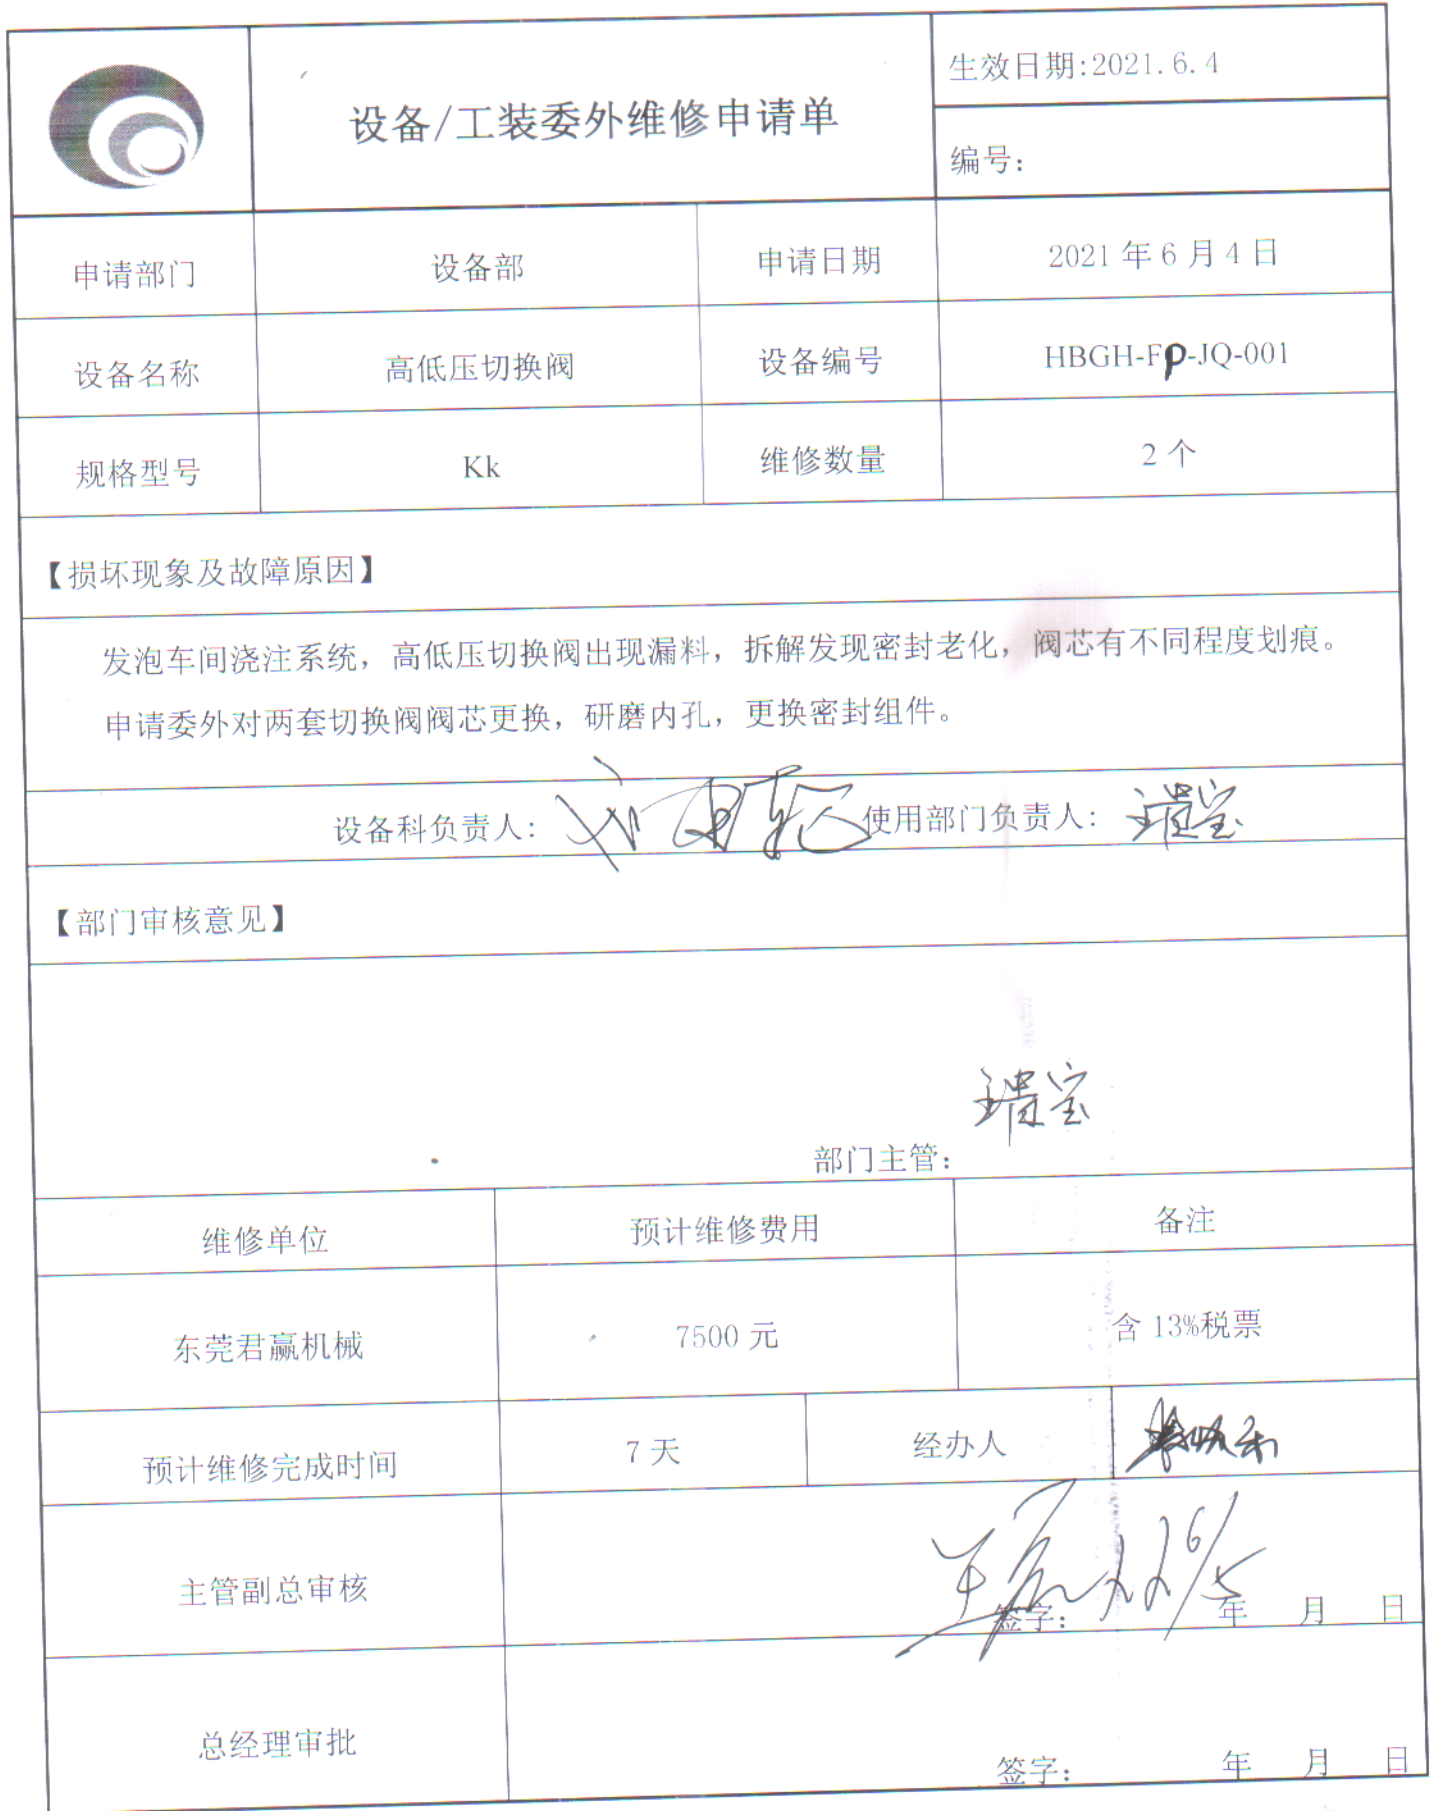 设备/工装委外维修申请单
生效日期:2021.6.4
编号:
申请部门 设备部 申请日期 2021 年 6 月 4 日
设备名称 高低压切换阀 设备编号 HBGH-FP-JQ-001
规格型号 Kk 维修数量 2 个
【损坏现象及故障原因】
发泡车间浇注系统，高低压切换阀出现漏料，拆解发现密封老化，阀芯有不同程度划痕。
申请委外对两套切换阀阀芯更换，研磨内孔，更换密封组件。
设备科负责人: 使用部门负责人:
【部门审核意见】
部门主管:
维修单位 预计维修费用 备注
东莞君赢机械 7500 元 含 13%税票
预计维修完成时间 7 天 经办人
主管副总审核 6/5
签字: 年 月 日
总经理审批
签字: 年 月 日